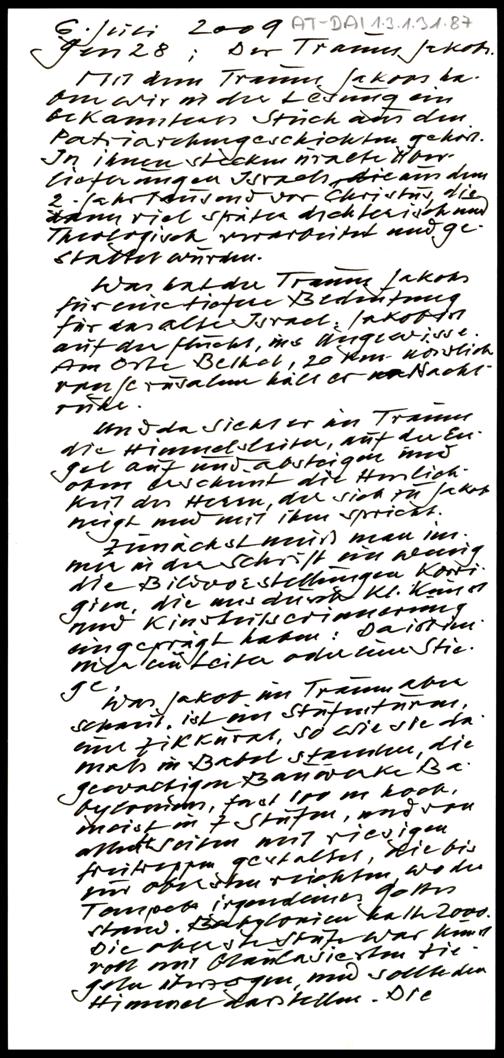 6. Juli 2009 AT-DAI 1.3.1.31.87
Gen 28 ; Der Traum Jakobs.
Mit dem Traum Jakobs ha-
ben wir in der Lesung ein
bekanntes Stück aus den
Patriarchengeschichten gehört.
In ihnen stecken uralte Über-
lieferungen Israels, die aus dem
2. Jahrtausend vor Christus, die
dann viel später dichterisch und
Theologisch verarbeitet und ge-
staltet wurden.
Was hat der Traum Jakobs
für eine tiefere Bedeutung
für das alte Israel: Jakob ist
auf der Flucht, ins Ungewisse.
Am Orte Bethel, 20 km nördlich
von Jerusalem hält er Nacht-
ruhe.
Und da sieht er im Traum
die Himmelsleiter, auf der En-
gel auf und absteigen und
oben erscheint die Herrlich-
keit des Herrn, der sich zu Jakob
neigt und mit ihm spricht.
Zunächst muß man im-
mer in der Schrift ein wenig
die Bildvorstellungen korri-
gieren, die uns durch Kunst
und Kindheitserinnerung
eingeprägt haben: Da ist im-
mer eine Leiter oder eine Stie-
ge.
Was Jakob im Traum aber
schaut, ist ein Stufenturm,
eine Zikkurat, so wie sie da-
mals in Babel standen, die
gewaltigen Bauwerke Ba-
byloniens, fast 100 m hoch,
meist in 7 Stufen, und von
allen Seiten mit riesigen
Freitreppen gestaltet, die bis
zur obersten reichten, wo der
Tempel irgendeines Gottes
stand. Babylonien hatte 2000.
Die oberste Stufe war kunst-
voll mit blauglasierten Zie-
geln überzogen, und sollte den
Himmel darstellen. Die